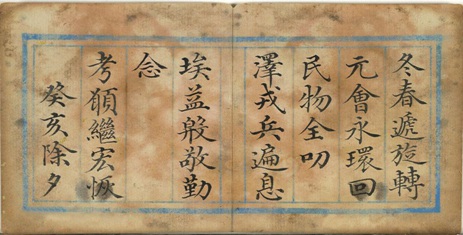 冬春遞旋轉
元會永環回
民物全叨
澤戎兵遍息
埃益殷敬勤
念
考頎繼宏恢
癸亥除夕